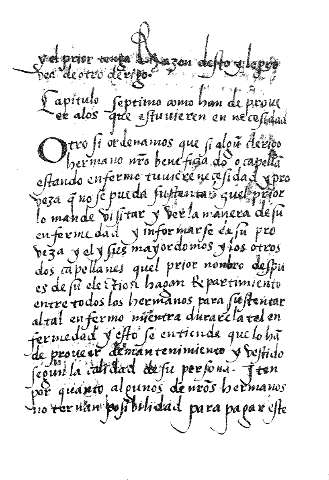 y el prior tenga Razon desto y le pro
vea de otro clerigo.
Capitulo septimo como han de proue
er a los que estuvieren en necesidad
Otro si ordenamos que si algun clerigo
hermano nro beneficiado o capellan
estando enfermo tuviere necesidad y pro
veza q no se pueda sustentar quel prior
lo mande visitar y ver la manera de su
enfermedad y informarse de su pro
veza y el y sus mayordomos y los otros
dos capellanes quel prior nombro despu
es de su election hagan Repartimiento
entre todos los hermanos para sustentar
al tal enfermo mientra durare la tal en
fermedad y esto se entienda que lo hā
de proveer de mantenimiento y vestido
segun la calidad de su persona. Iten
por quanto algunos de nros hermanos
no ternan posibilidad para pagar este